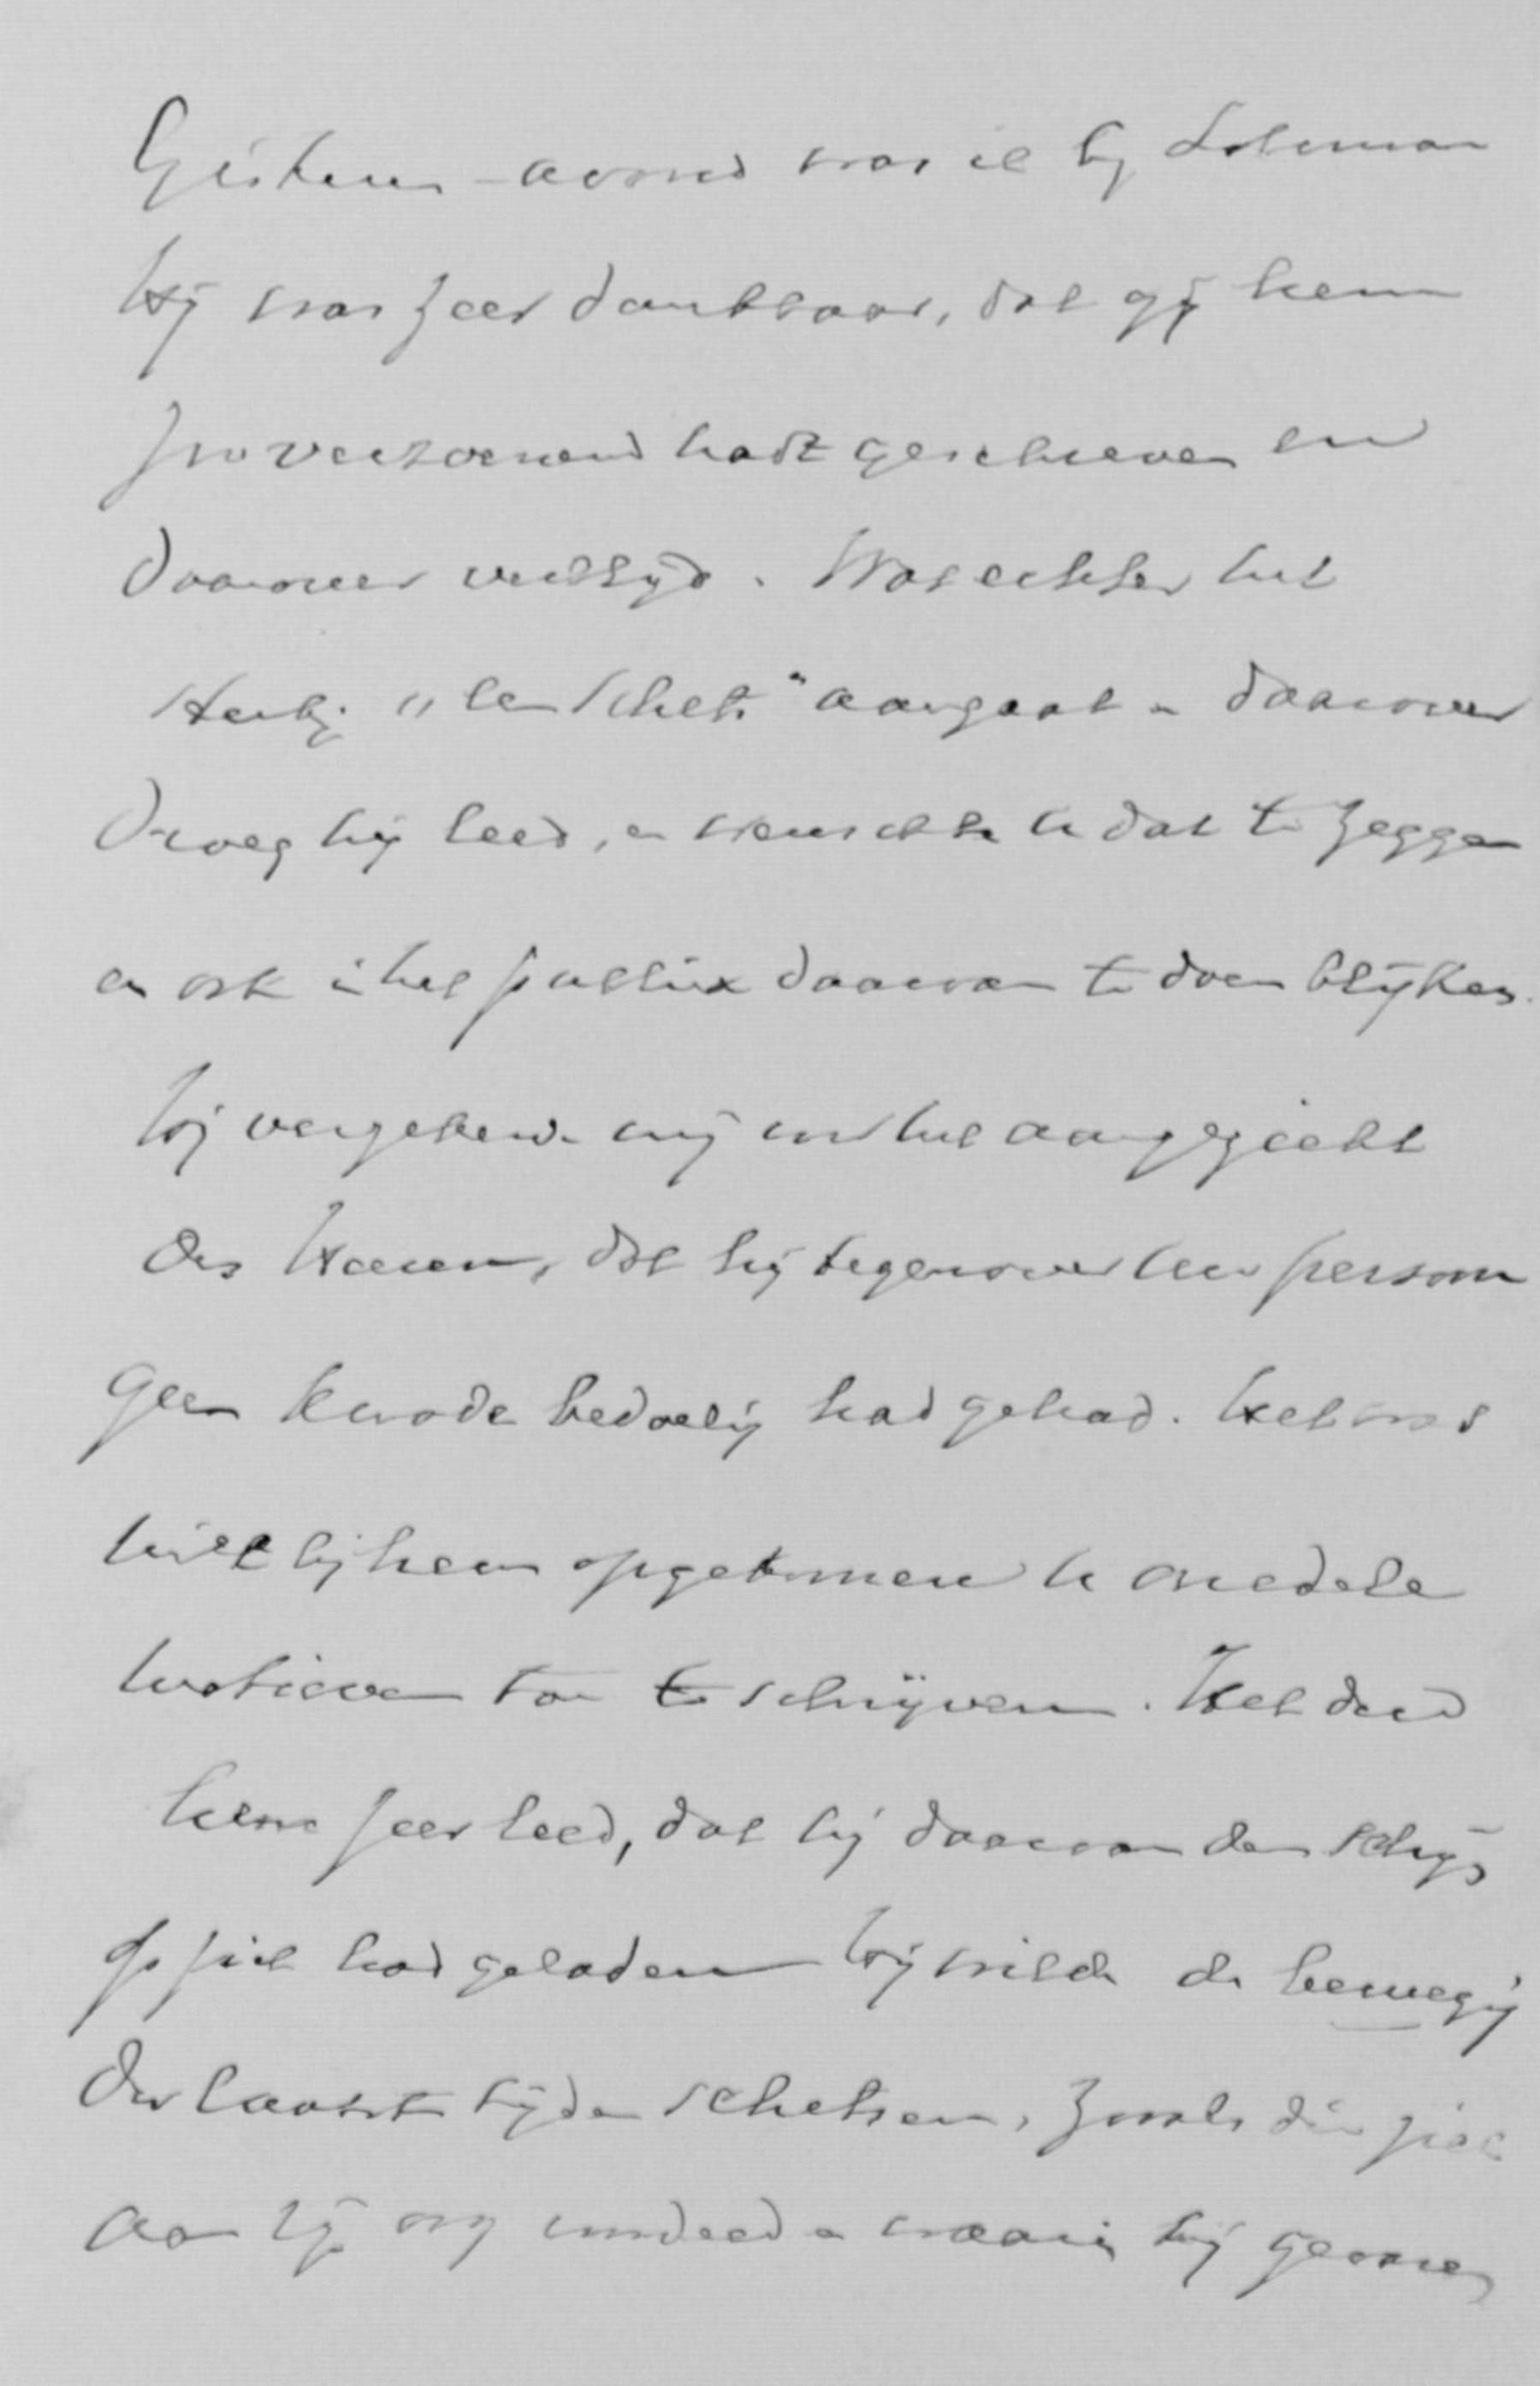 Gisteren-avond was ik bij Lohman
Hij was zeer dankbaar, dat gij hem
zoo verzoenend hadt geschreven en
daarmeer verblijd. Wat echter het
Heerbij. "ter Schets" aangaat - daarover
droeg hij leed, en wenschte u dat te zeggen
en ook in het publiek daarvan te doen blijken.
Hij verzekerde mij voor het aangezicht
des Heeren, dat hij tegenover uw persoon
geen kwade bedoelig had gehad. Het was
niet bij hem opgekomen u onedele
motieven toe te schrijven. Het deed
hem zeer leed, dat hij daarvan den schijn
op zich had geladen Hij wilde de bewegig
der laatste tijden schetsen, zooals die zich
aan zijn oog voordeed en waarin hij gevaren